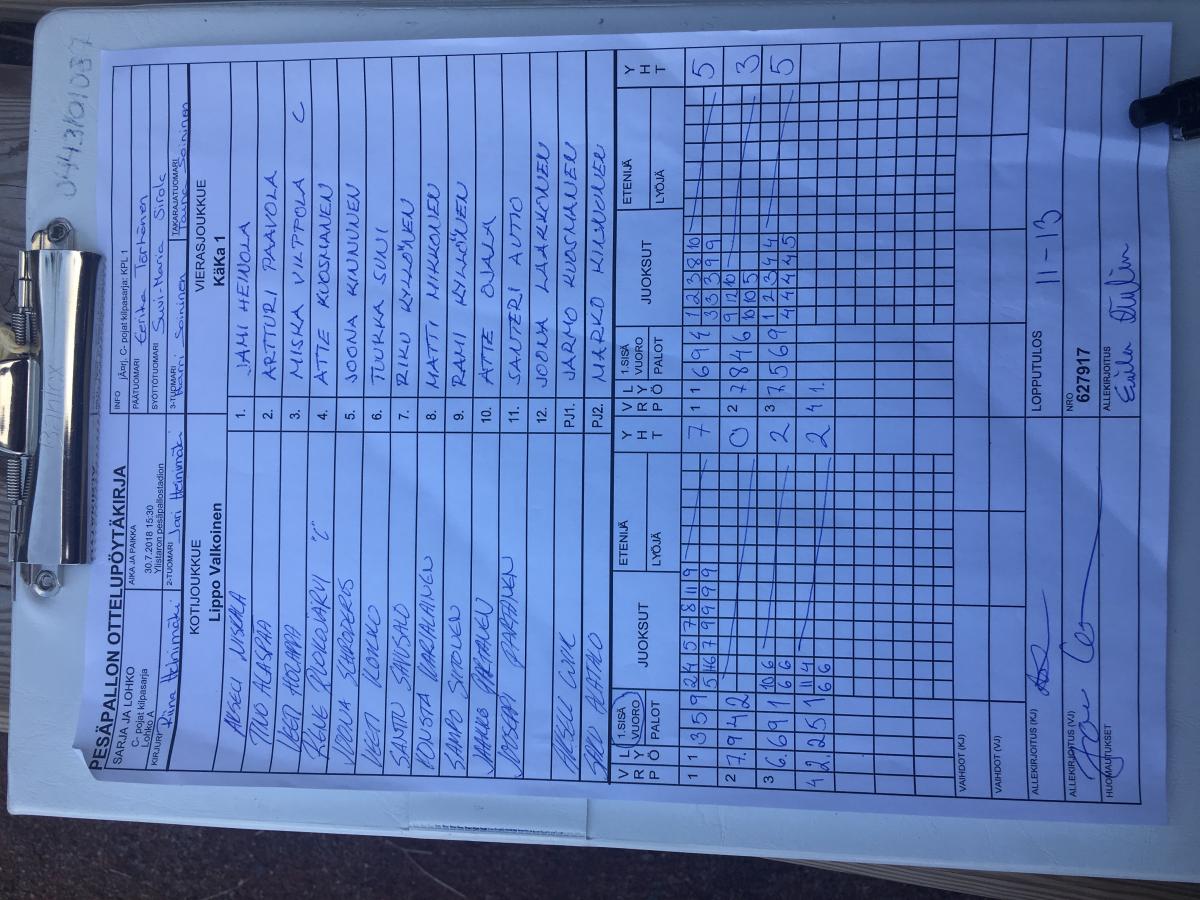 0443101037
PESÄPALLON OTTELUPÖYTÄKIRJA
SARJA JA LOHKO
C- pojat kilpasarja
Lohko A
AIKA JA PAIKKA
30.7.2018 15:30
Ylistaron pesäpallostadion
INFO jÄorj. C- pojat kilpasarja: KPL 1
PÄÄTUOMARI Eerika Tarhanen
SYÖTTÖTUOMARI Suvi-Maria Sirola
KIRJURI Riina Heinimäki
2-TUOMARI Jari Heinimäki
3-TUOMARI Harri Soininen
TAKARAJATUOMARI Soininen
KOTIJOUKKUE
Lippo Valkoinen
VIERASJOUKKUE
KäKa 1
1. JAMI HEINOLA
TIMO ALASPÄÄ 2. ARTTURI PAAVOLA
VEETI HOLAPPA 3. MISKA VILPPOLA C
"C" 4. ATTE KUOSMANEN
5. JOONA KINNUNEN
VEETI 6. TUUKKA SUNI
SANTTU SAVISALO 7. RIKU KYLLÖNEN
8. MATTI MIKKONEN
SAMPO SIITONEN 9. RAMI KYLLÖNEN
PARTANEN 10. ATTE OJALA
JOOSEPPI PARTANEN 11. SANTERI AUTIO
12. JOONA LAAKKONEN
PJ1. JARMO KUOSMANEN
ALATALO PJ2. MARKO KINNUNEN
V L
R Y
P Ö
1.SISÄ
VUORO
PALOT
JUOKSUT
ETENIJÄ
LYÖJÄ
Y
H
T
V L
R Y
P Ö
1.SISÄ
VUORO
PALOT
JUOKSUT
ETENIJÄ
LYÖJÄ
Y
H
T
1 1 3 5 9 2 4 5 7 8 11 9 7 1 1 6 9 4 1 2 3 8 10 5
5 11 6 7 9 9 9 9 3 3 3 9 9
2 7. 9 4 2 0 2 7 8 4 6 9 12 10 3
10 10 5
3 6. 6 9 1 10 6 2 3 7. 5 6 9 1 2 3 4 4 5
6 6 4 4 4 4 5
4 2. 2 5 1 11 4 2 4 1.
6 6
VAIHDOT (KJ)
VAIHDOT (VJ)
ALLEKIRJOITUS (KJ)
LOPPUTULOS 11-13
ALLEKIRJOITUS (VJ)
NRO
627917
HUOMAUTUKSET
ALLEKIRJOITUS